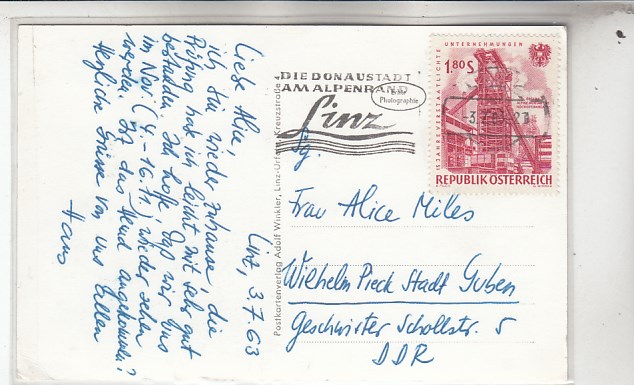 Linz, 3.7.63
Liebe Alice,
ich bin wieder zuhause, die
Prüfung hab ich leicht mit sehr gut
bestanden. Ich hoffe, daß wir uns
im Nov. (4.-16.11.) wieder sehen
werden. Ist das Hemd angekommen?
Herzliche Grüsse von uns Allen
Hans
Postkartenverlag Adolf Winkler, Linz-Urfahr, Kreuzstraße 4
DIE DONAUSTADT
AM ALPENRAND
Linz
Photographie
UNTERNEHMUNGEN
15 JAHRE VERSTAATLICHTE
1.80 S
REPUBLIK ÖSTERREICH
Frau Alice Miles
Wilhelm Pieck Stadt Guben
Geschwister Schollstr. 5
DDR